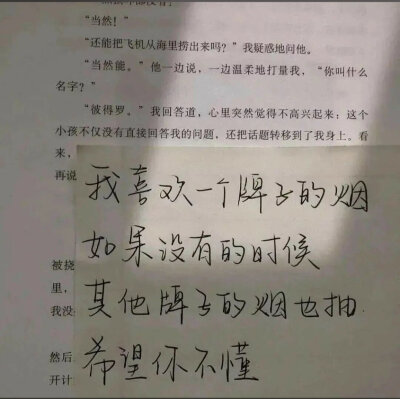 “当然！”
“还能把飞机从海里捞出来吗？”我疑惑地问他。
“当然能。”他一边说，一边温柔地打量我，“你叫什么
名字？”
“彼得罗。”我回答道，心里突然觉得不高兴起来；这个
小孩不仅没有直接回答我的问题，还把话题转移到了我身上。看
来，
再说
我喜欢一个牌子的烟
如果没有的时候
被挠
里，
其他牌子的烟也抽
我没
希望你不懂
然后
开计